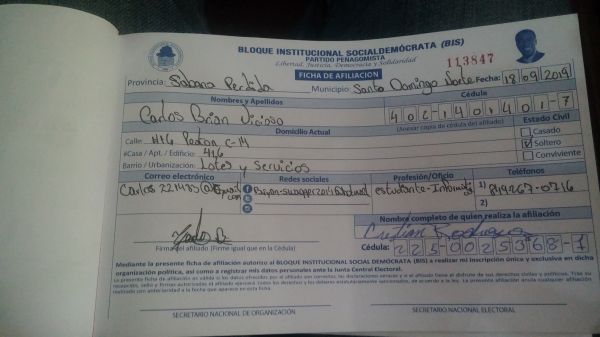 BLOQUE INSTITUCIONAL SOCIALDEMÓCRATA (BIS)
PARTIDO PEÑAGOMISTA
Libertad, Justicia, Democracia y Solidaridad
113847
FICHA DE AFILIACION
Provincia: Sabana Perdida Municipio: Santo Domingo Norte Fecha: 18 09 2019
Nombres y Apellidos Cédula
Carlos Brian Vicioso 402-1401401-7
(Anexar copia de cédula del afiliado)
Domicilio Actual Estado Civil
Calle #16 Peaton C-14 Casado
#Casa / Apt. / Edificio: 416 Soltero
Barrio / Urbanización: Lotes y Servicios Conviviente
Correo electrónico Redes sociales Profesión/Oficio Teléfonos
estudiante- 1) 849267-0716
2)
Nombre completo de quien realiza la afiliación
Cristian Rodriguez
Firma del afiliado (Firme igual que en la Cédula) Cédula: 225-0025368-1
Mediante la presente ficha de afiliación autorizo al BLOQUE INSTITUCIONAL SOCIAL DEMÓCRATA (BIS) a realizar mi inscripción única y exclusiva en dicha
organización política, así como a registrar mis datos personales ante la Junta Central Electoral.
SECRETARIO NACIONAL DE ORGANIZACIÓN SECRETARIO NACIONAL ELECTORAL